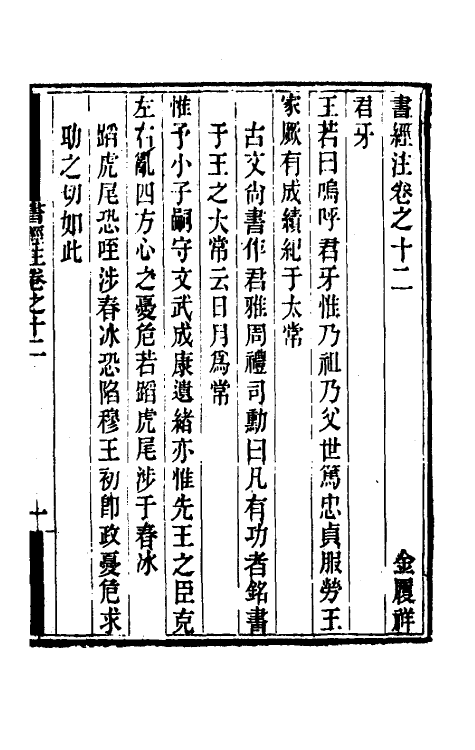 書經注卷之十二　金履祥
君牙
王若曰嗚呼君牙惟乃祖乃父世篤忠貞服勞王
家厥有成績紀于太常
古文尚書作君雅周禮司勳曰凡有功者銘書
于王之大常云日月爲常
惟予小子嗣守文武成康遺緒亦惟先王之臣克
左右亂四方心之憂危若蹈虎尾涉于春冰
蹈虎尾恐咥涉春冰恐陷穆王初卽政憂危求
助之切如此
書經注卷之十二
一